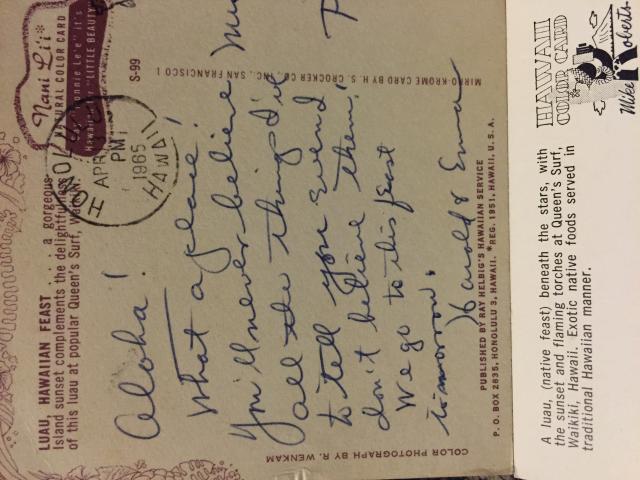 LUAU, HAWAIIAN FEAST . . . a gorgeous
Island sunset complements the delightfulness
of this luau at popular Queen's Surf, Waikiki.
Nani Li'i*
NATURAL COLOR CARD
"LITTLE BEAUTY"
S-99
HONOLULU
APR
PM
1965
HAWAII
Aloha!
What a place!
You'll never believe
all the things I'd
to tell you I
don't believe them!
We go to this feast
tomorrow.
Harold & Erma
COLOR PHOTOGRAPH BY R. WENKAM
MIRRO-KROME CARD BY H. S. CROCKER CO., INC., SAN FRANCISCO 1
PUBLISHED BY RAY HELBIG'S HAWAIIAN SERVICE
P. O. BOX 2835, HONOLULU 3, HAWAII. *REG. 1951, HAWAII, U. S. A.
A luau, (native feast) beneath the stars, with
the sunset and flaming torches at Queen's Surf,
Waikiki, Hawaii. Exotic native foods served in
traditional Hawaiian manner.
HAWAII
COLOR CARD
Mike Roberts